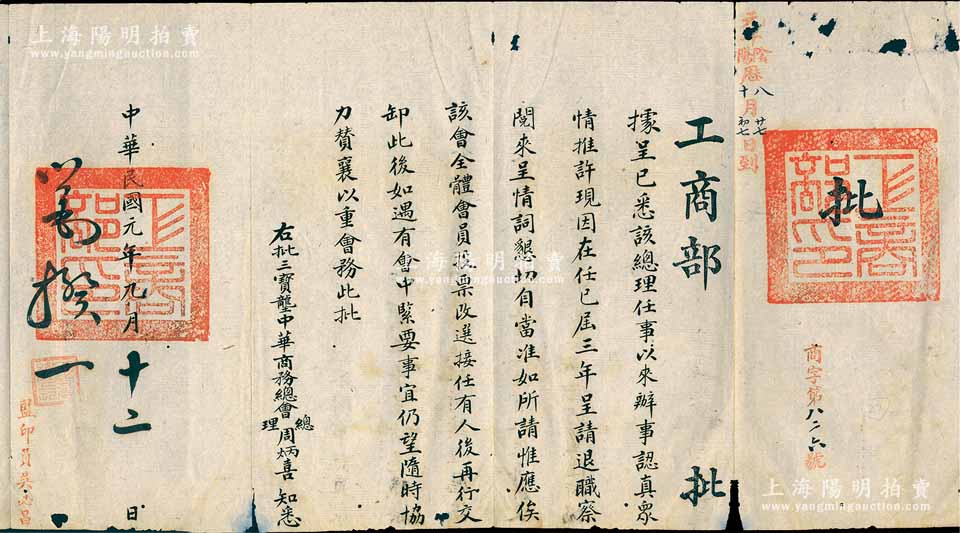 批
商字第八二六號
陰陽曆八十月廿七初七日到
工商部 批
據呈已悉該總理任事以來辦事認真眾
情推許現因在任已屆三年呈請退職察
閱來呈情詞懇切自當准如所請惟應俟
該會全體會員投票改選接任有人後再行交
卸此後如遇有會中緊要事宜仍望隨時協
力贊襄以重會務此批
右批三寶壟中華商務總會總理周炳喜 知悉
中華民國元年九月十二日
工商部印
監印員吳
上海陽明拍賣
www.yangmingauction.com
上海陽明拍賣
www.yangmingauction.com
上海陽明拍賣
www.yangmingauction.com